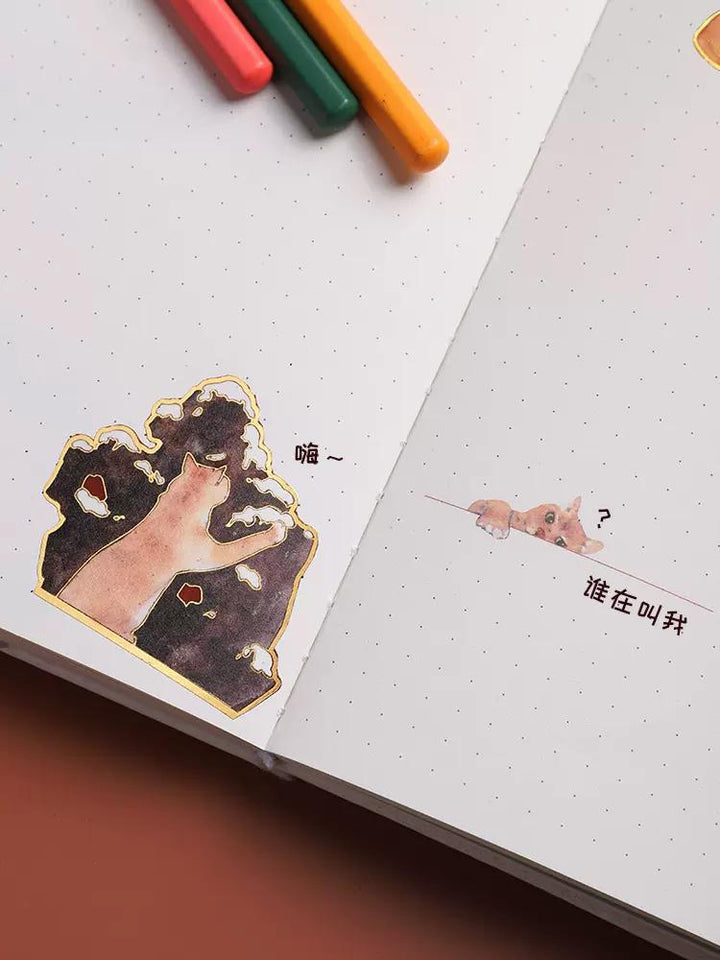 嗨～
?
谁在叫我